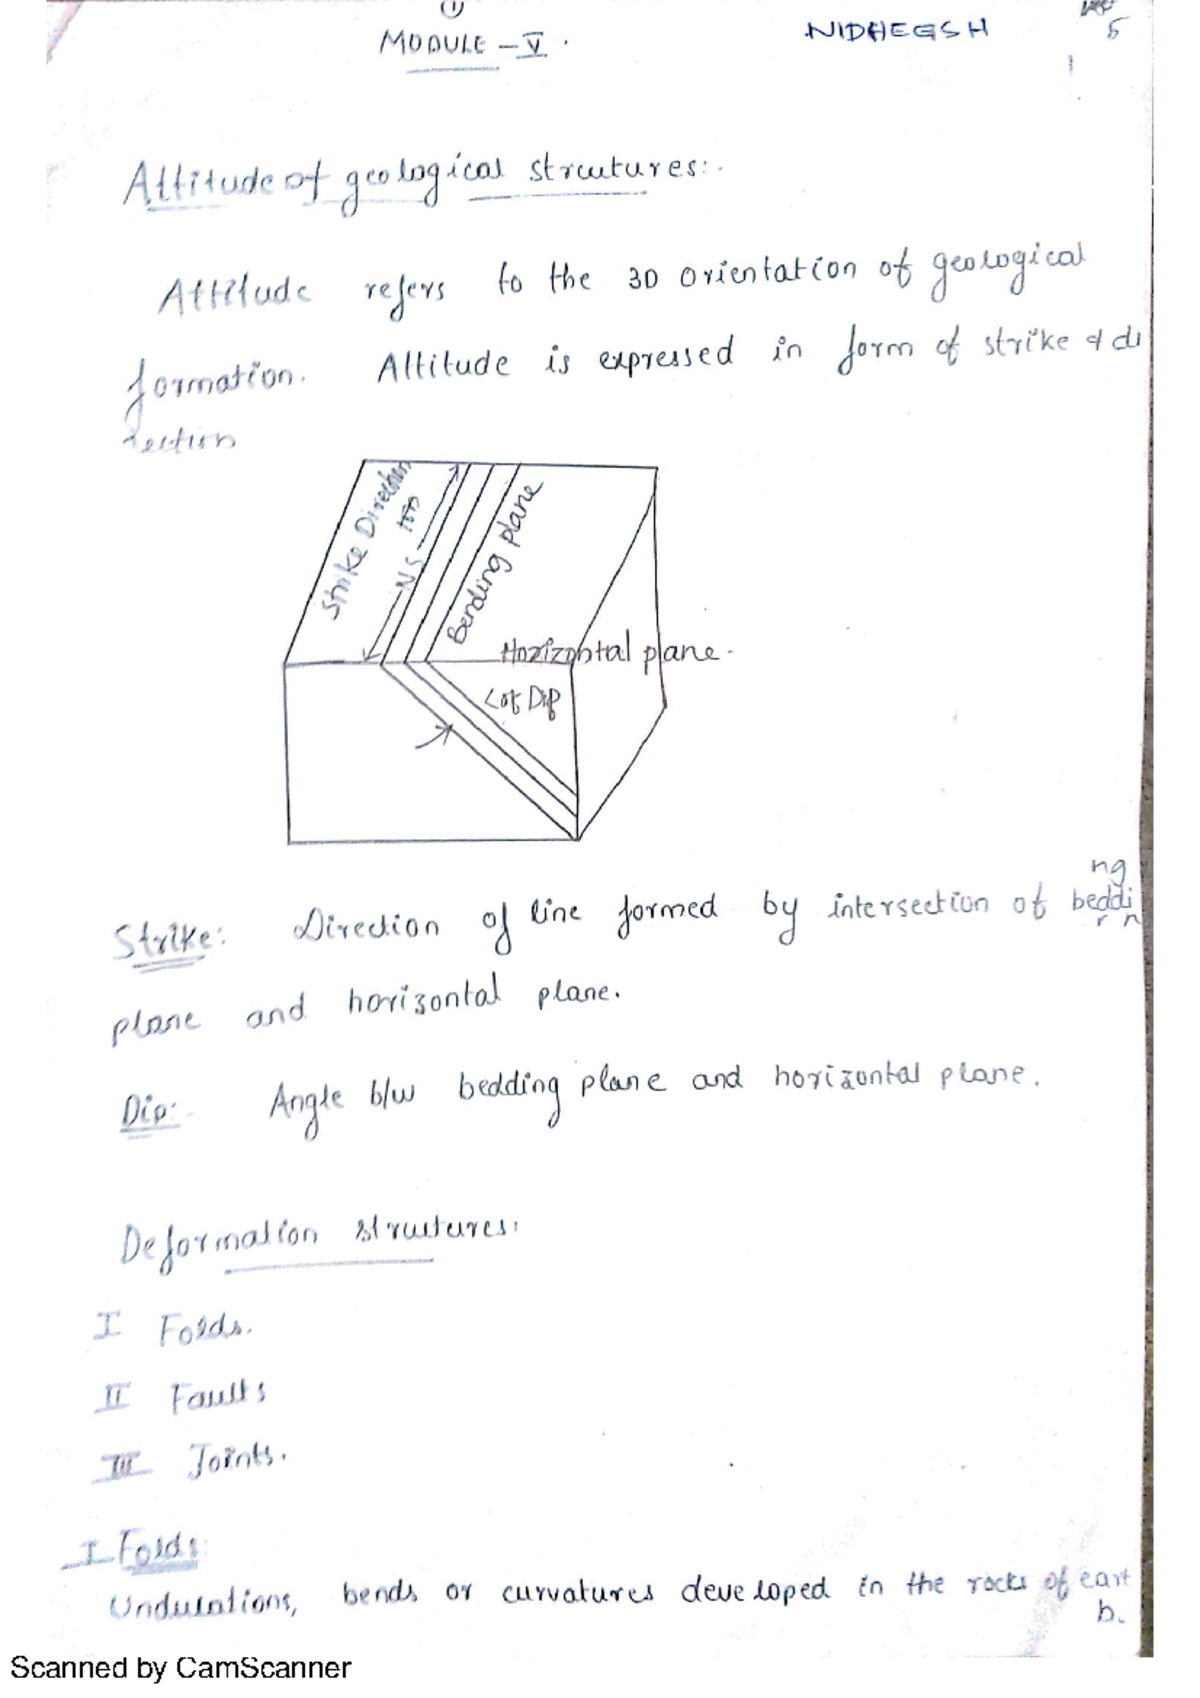 ①
MODULE - V.
NIDHEGSH
5
Attitude of geological structures:-
Attitude refers to the 3D orientation of geological
formation. Attitude is expressed in form of strike & di
rection
Strike Direction
NS
Bending plane
Horizontal plane.
∠ of Dip
Strike: Direction of line formed by intersection of beddi
ng
plane and horizontal plane.
Dip:- Angle b/w bedding plane and horizontal plane.
Deformation structures:
I Folds.
II Faults
III Joints.
I Folds:
Undulations, bends or curvatures developed in the rocks of eart
h.
Scanned by CamScanner